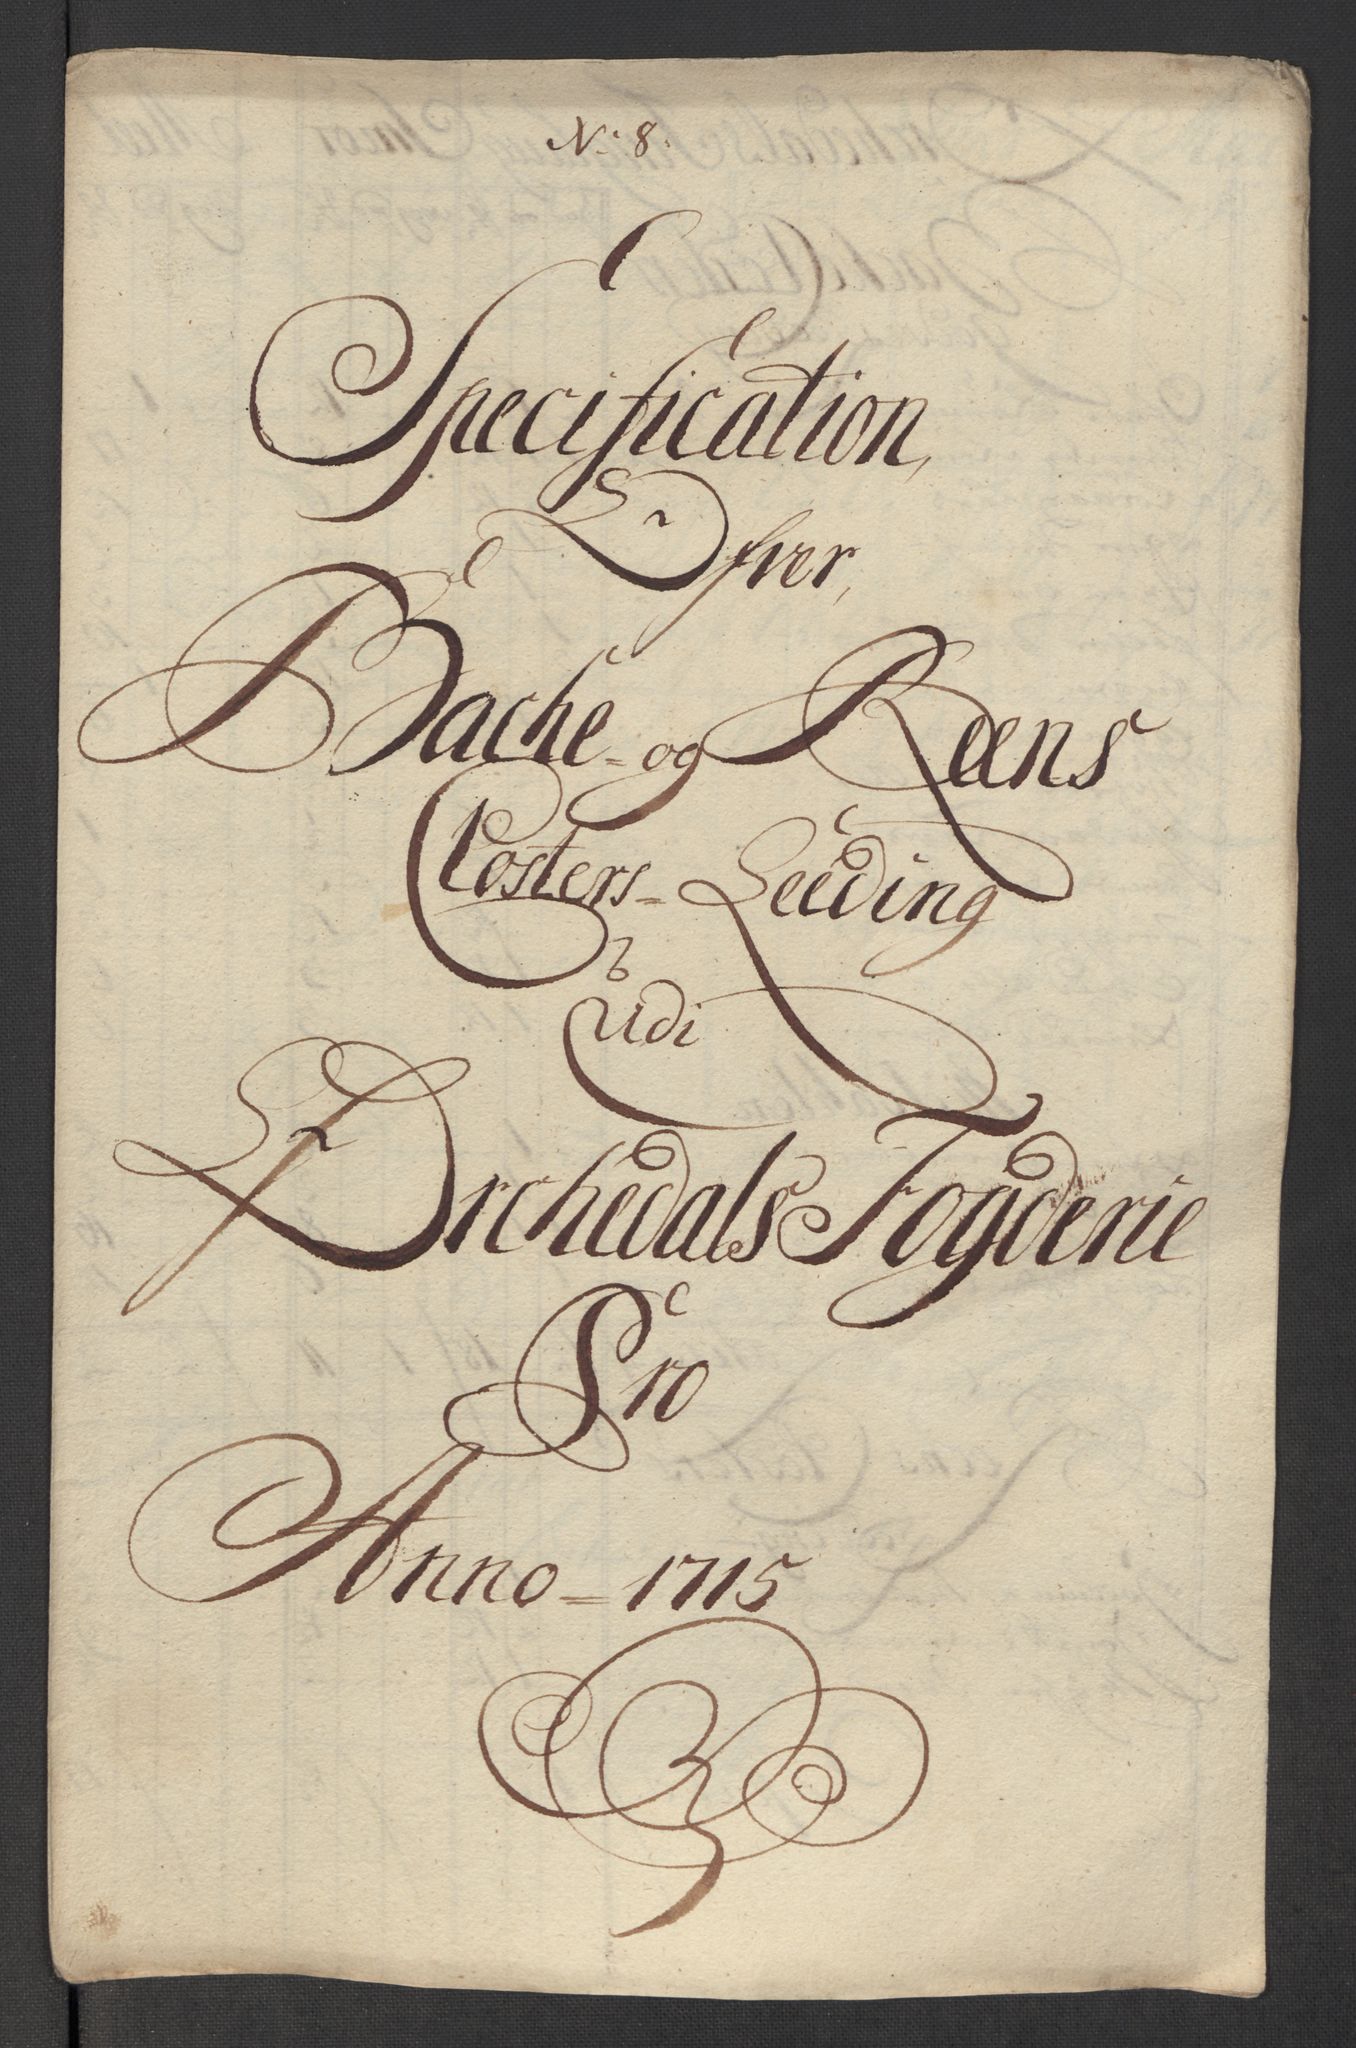 No: 8.
Specification,
Ofver,
Bache- og Reens
Closters- Leeding
Udi
Orchedals Fogderie
Pro
Anno- 1715